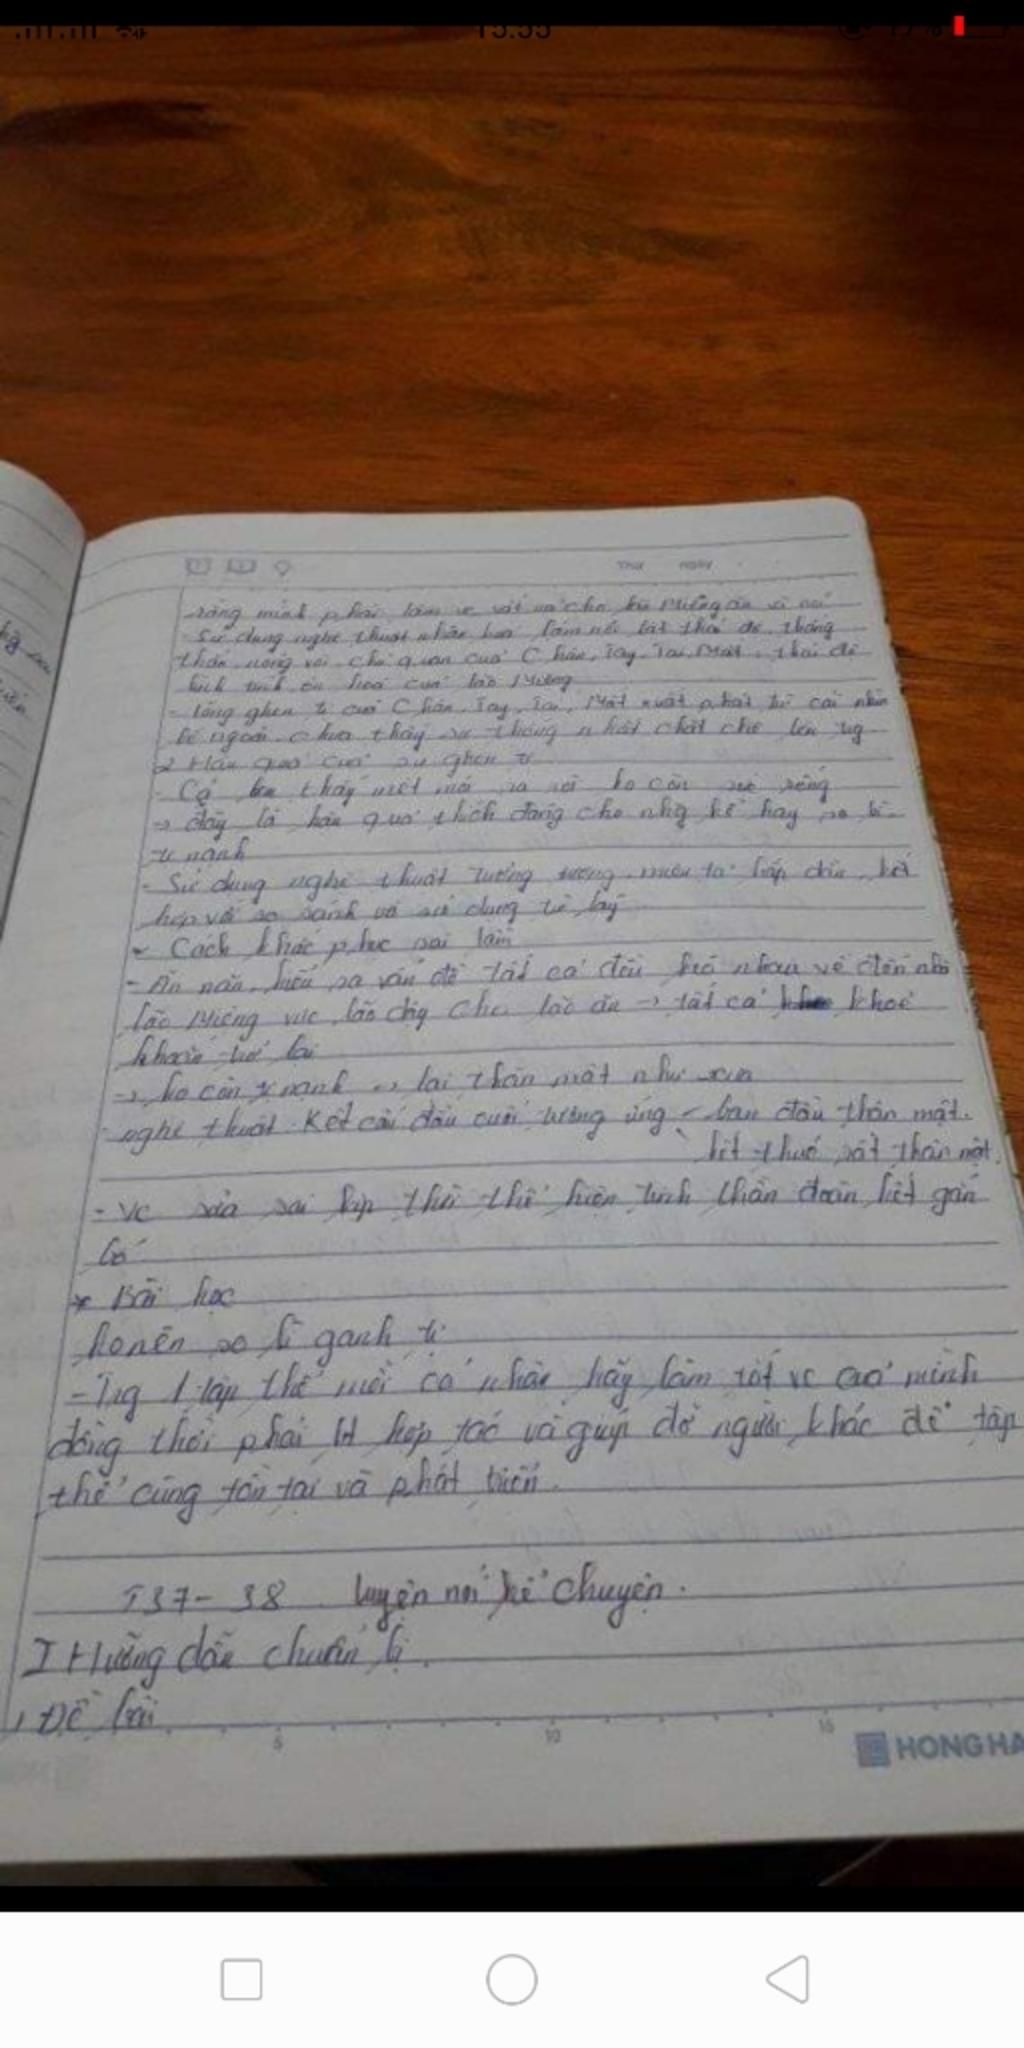 15:55
17%
THỨ NGÀY
rằng mình phải làm vc vất vả cho lão Miệng ăn vì nói
- Sử dụng nghệ thuật nhân hoá làm nổi bật thái độ thẳng
thắn nóng vội chủ quan của Chân, Tay, Tai, Mắt, thái độ
lão Miệng
- Lòng ghen tị của Chân, Tay, Tai, Mắt xuất phát từ cái nhìn
bề ngoài chưa thấy sự thống nhất chặt chẽ bên tg
2 Hậu quả của sự ghen tị
- Cả bọn thấy mệt mỏi rã rời
-> đây là hậu quả thích đáng cho nhg kẻ hay so bì
tị nạnh
- Sử dụng nghệ thuật tưởng tượng miêu tả hấp dẫn, kết
hợp với so sánh và sử dụng từ láy
* Cách khắc phục sai lầm
- Ăn năn, hiểu ra vấn đề tất cả đều kéo nhau về đến nhà
lão Miệng vực lão dậy cho lão ăn -> tất cả khoẻ
khoắn trở lại
-> ko còn tị nạnh -> lại thân mật như xưa
nghệ thuật. Kết cấu đầu cuối tương ứng - ban đầu thân mật.
kết thúc rất thân mật.
- vc sửa sai kịp thời thể hiện tinh thần đoàn kết gắn
bó
* Bài học
ko nên so bì ganh tị
- Trg 1 tập thể mỗi cá nhân hãy làm tốt vc của mình
đồng thời phải hợp tác và giúp đỡ người khác để tập
thể cùng tồn tại và phát triển.
T37-38 Luyện nói kể chuyện.
I Hướng dẫn chuẩn bị.
1 Đề bài
5 10 15
HONG HA